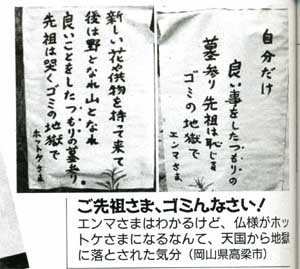 自分だけ
良い事をしたつもりの
墓参り 先祖は恥じる
ゴミの地獄で
エンマさま
新しい花や供物を持って来て
後は野となれ山となれ
良いことをしたつもりの墓参り。
先祖は哭くゴミの地獄で
ホットケさま
ご先祖さま、ゴミんなさい!
エンマさまはわかるけど、仏様がホッ
トケさまになるなんて、天国から地獄
に落とされた気分(岡山県高梁市)